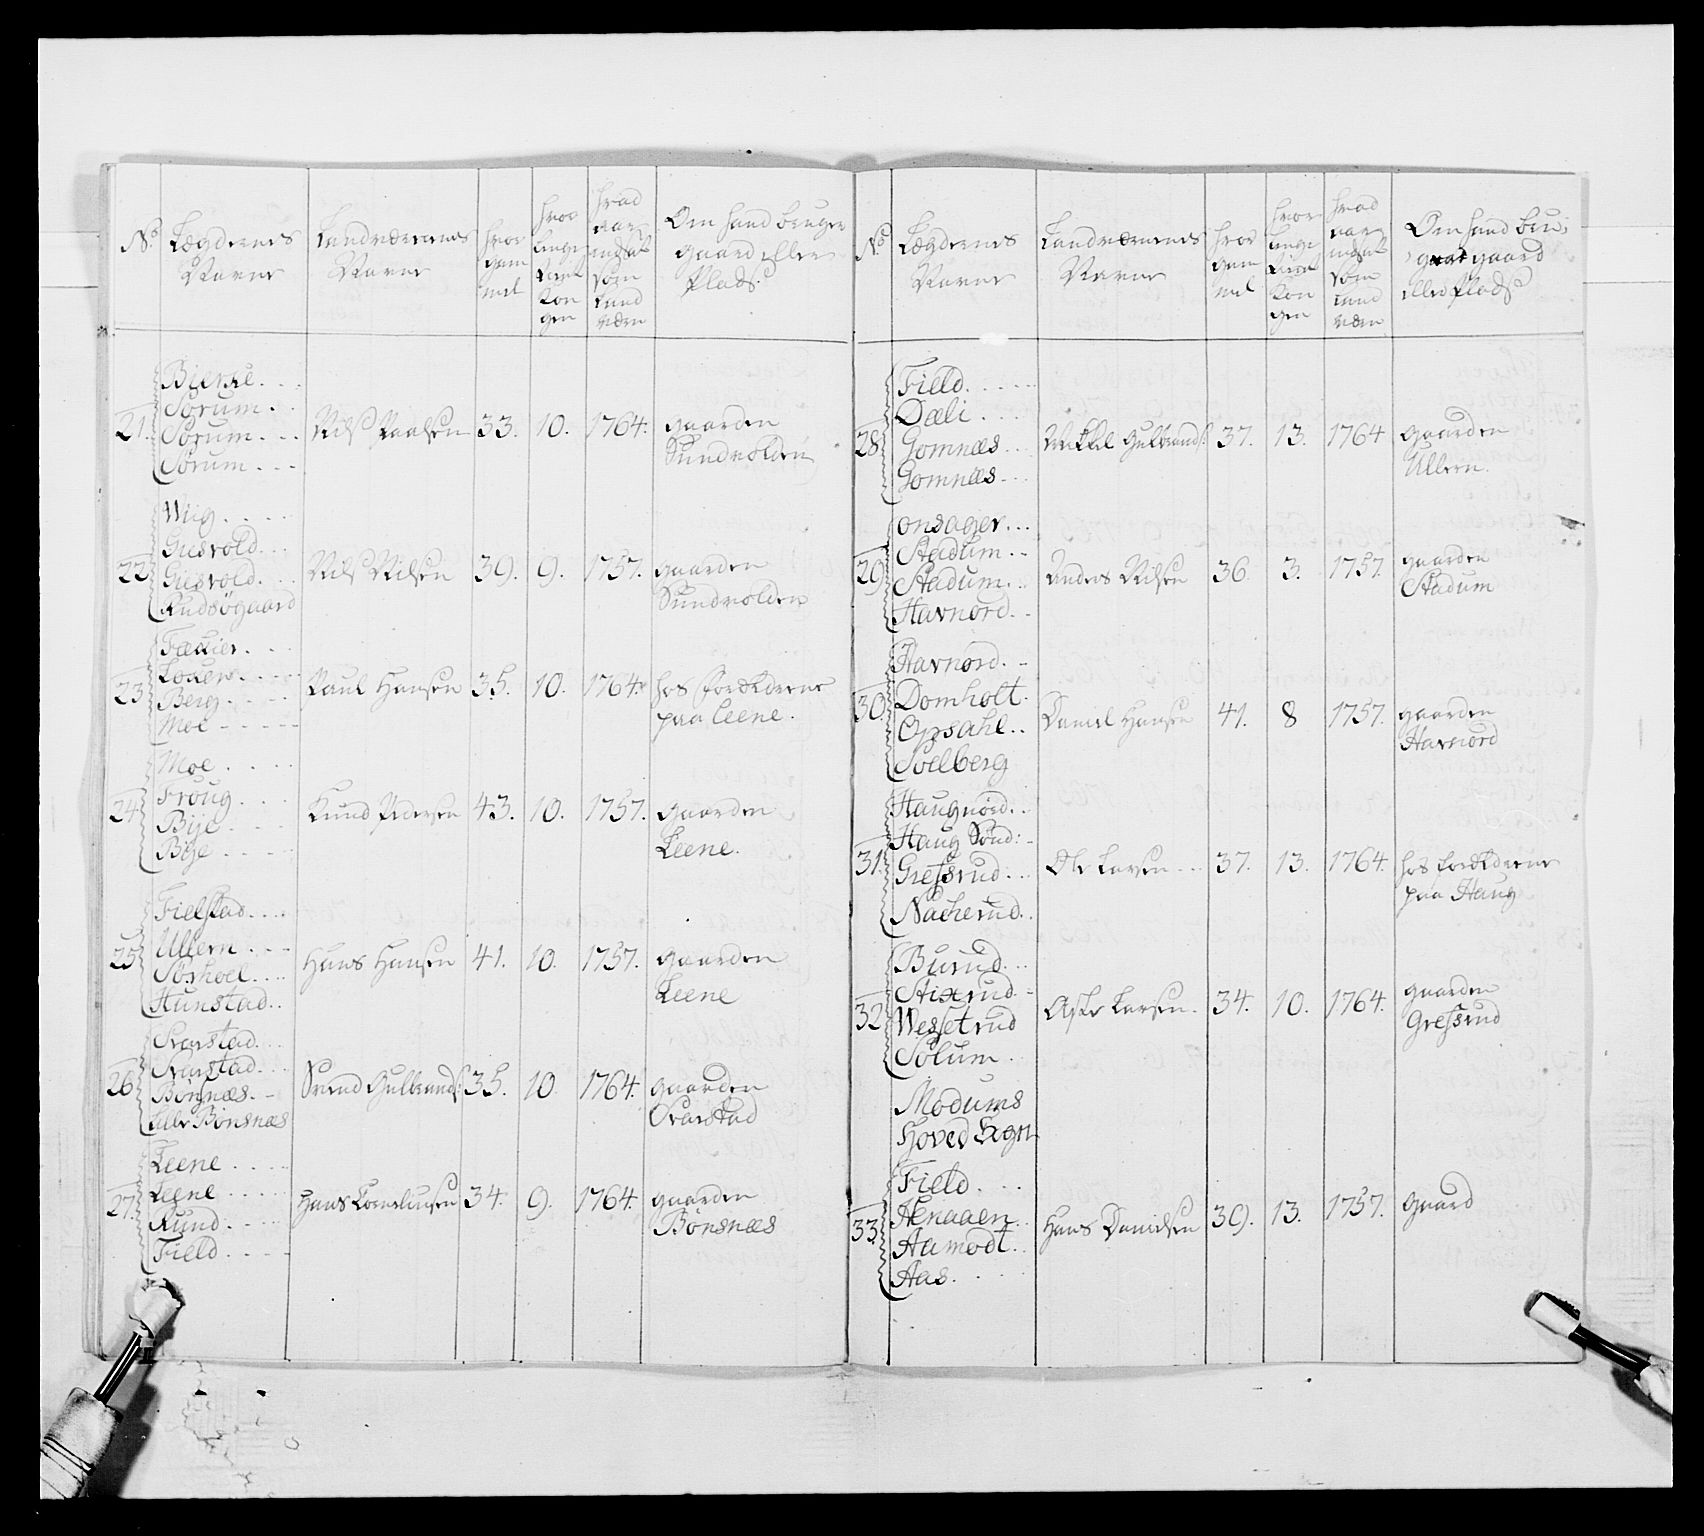 No
Lægdernes
Navne
Landværnenes
Navne
hvor
gam
mel
hvor
længe
tient
Kon
gen
hvad
aar
andsat
som
Land
værn
Om hand bruger
gaard eller
Plads
21.
Bierke
Sørum
Sørum
Sørum
Nils Paalsen 33. 10. 1764. gaarden
Sundvolden
22
Wiig
Giesvold
Giesvold
Rudsøgaard
Nils Nilsen 39. 9. 1757. gaarden
Sundvolden
23
Loxen
Berg
Moe
Paul Hansen 35. 10. 1764. hos forældrene
paa Leene.
24
Moe
Froug
Bije
Bije
Knud Pedersen 43. 10. 1757. gaarden
Leene.
25
Fielstad
Ullern
Sørhoel
Hunstad
Hans Hansen 41. 10. 1757. gaarden
Leene
26
Svarstad
Svarstad
Bønsnæs
Lille Bønsnæs
Svend Gulbrands: 35. 10 1764. gaarden
Svarstad
27.
Leene
Leene
Rund
Field
Hans Corneliusen 34. 9. 1764. gaarden
Bønsnæs
No
Lægdernes
Navne
Landværnenes
Navne
hvor
gam
mel
hvor
længe
tient
Kon
gen
hvad
aar
andsat
som
Land
værn
Om hand bru:
gaard
eller Plads
28
Field
Dæli
Gomnæs
Gomnæs
Mikkel Gulbrands: 37. 13. 1764 gaarden
Ullern.
29
Onsager
Stadum
Stadum
Havnord
Anders Nilsen 36. 3. 1757. gaarden
Stadum
30.
Havnord
Domholt
Opsahl
Solberg
Daniel Hansen 41. 8 1757. gaarden
Havnord
31.
Haugnord
Haug Sønd:
Gresrud
Nacherud
Ole Larsen 37. 13. 1764. hos forældrene
paa Haug
32
Burud
Stixrud
Wessetrud
Solum
Asle Larsen 34. 10. 1764. gaarden
Gresrud
Modums
Hoved Sogn
33
Field
Henaaen
Aamodt
Aas
Hans Danielsen 39. 13. 1757. gaard